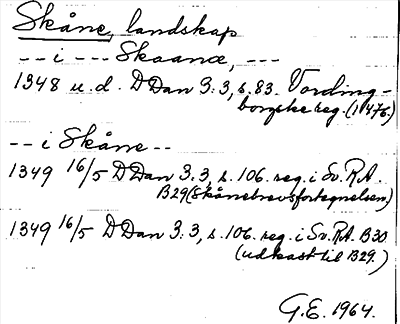 Skåne, landskap
-- i --- Skaanæ, ---
1348 u.d. DDan 3:3, s. 83. Vording-
borgske reg. (1476.)
-- i Skåne --
1349 16/5 DDan 3:3, s. 106. reg. i Sv. R.A.
B29 (Skånebrevsfortegnelsen.)
1349 16/5 DDan 3:3, s. 106. reg. i Sv. R.A. B30
(udkast til B29.)
G.E. 1964.